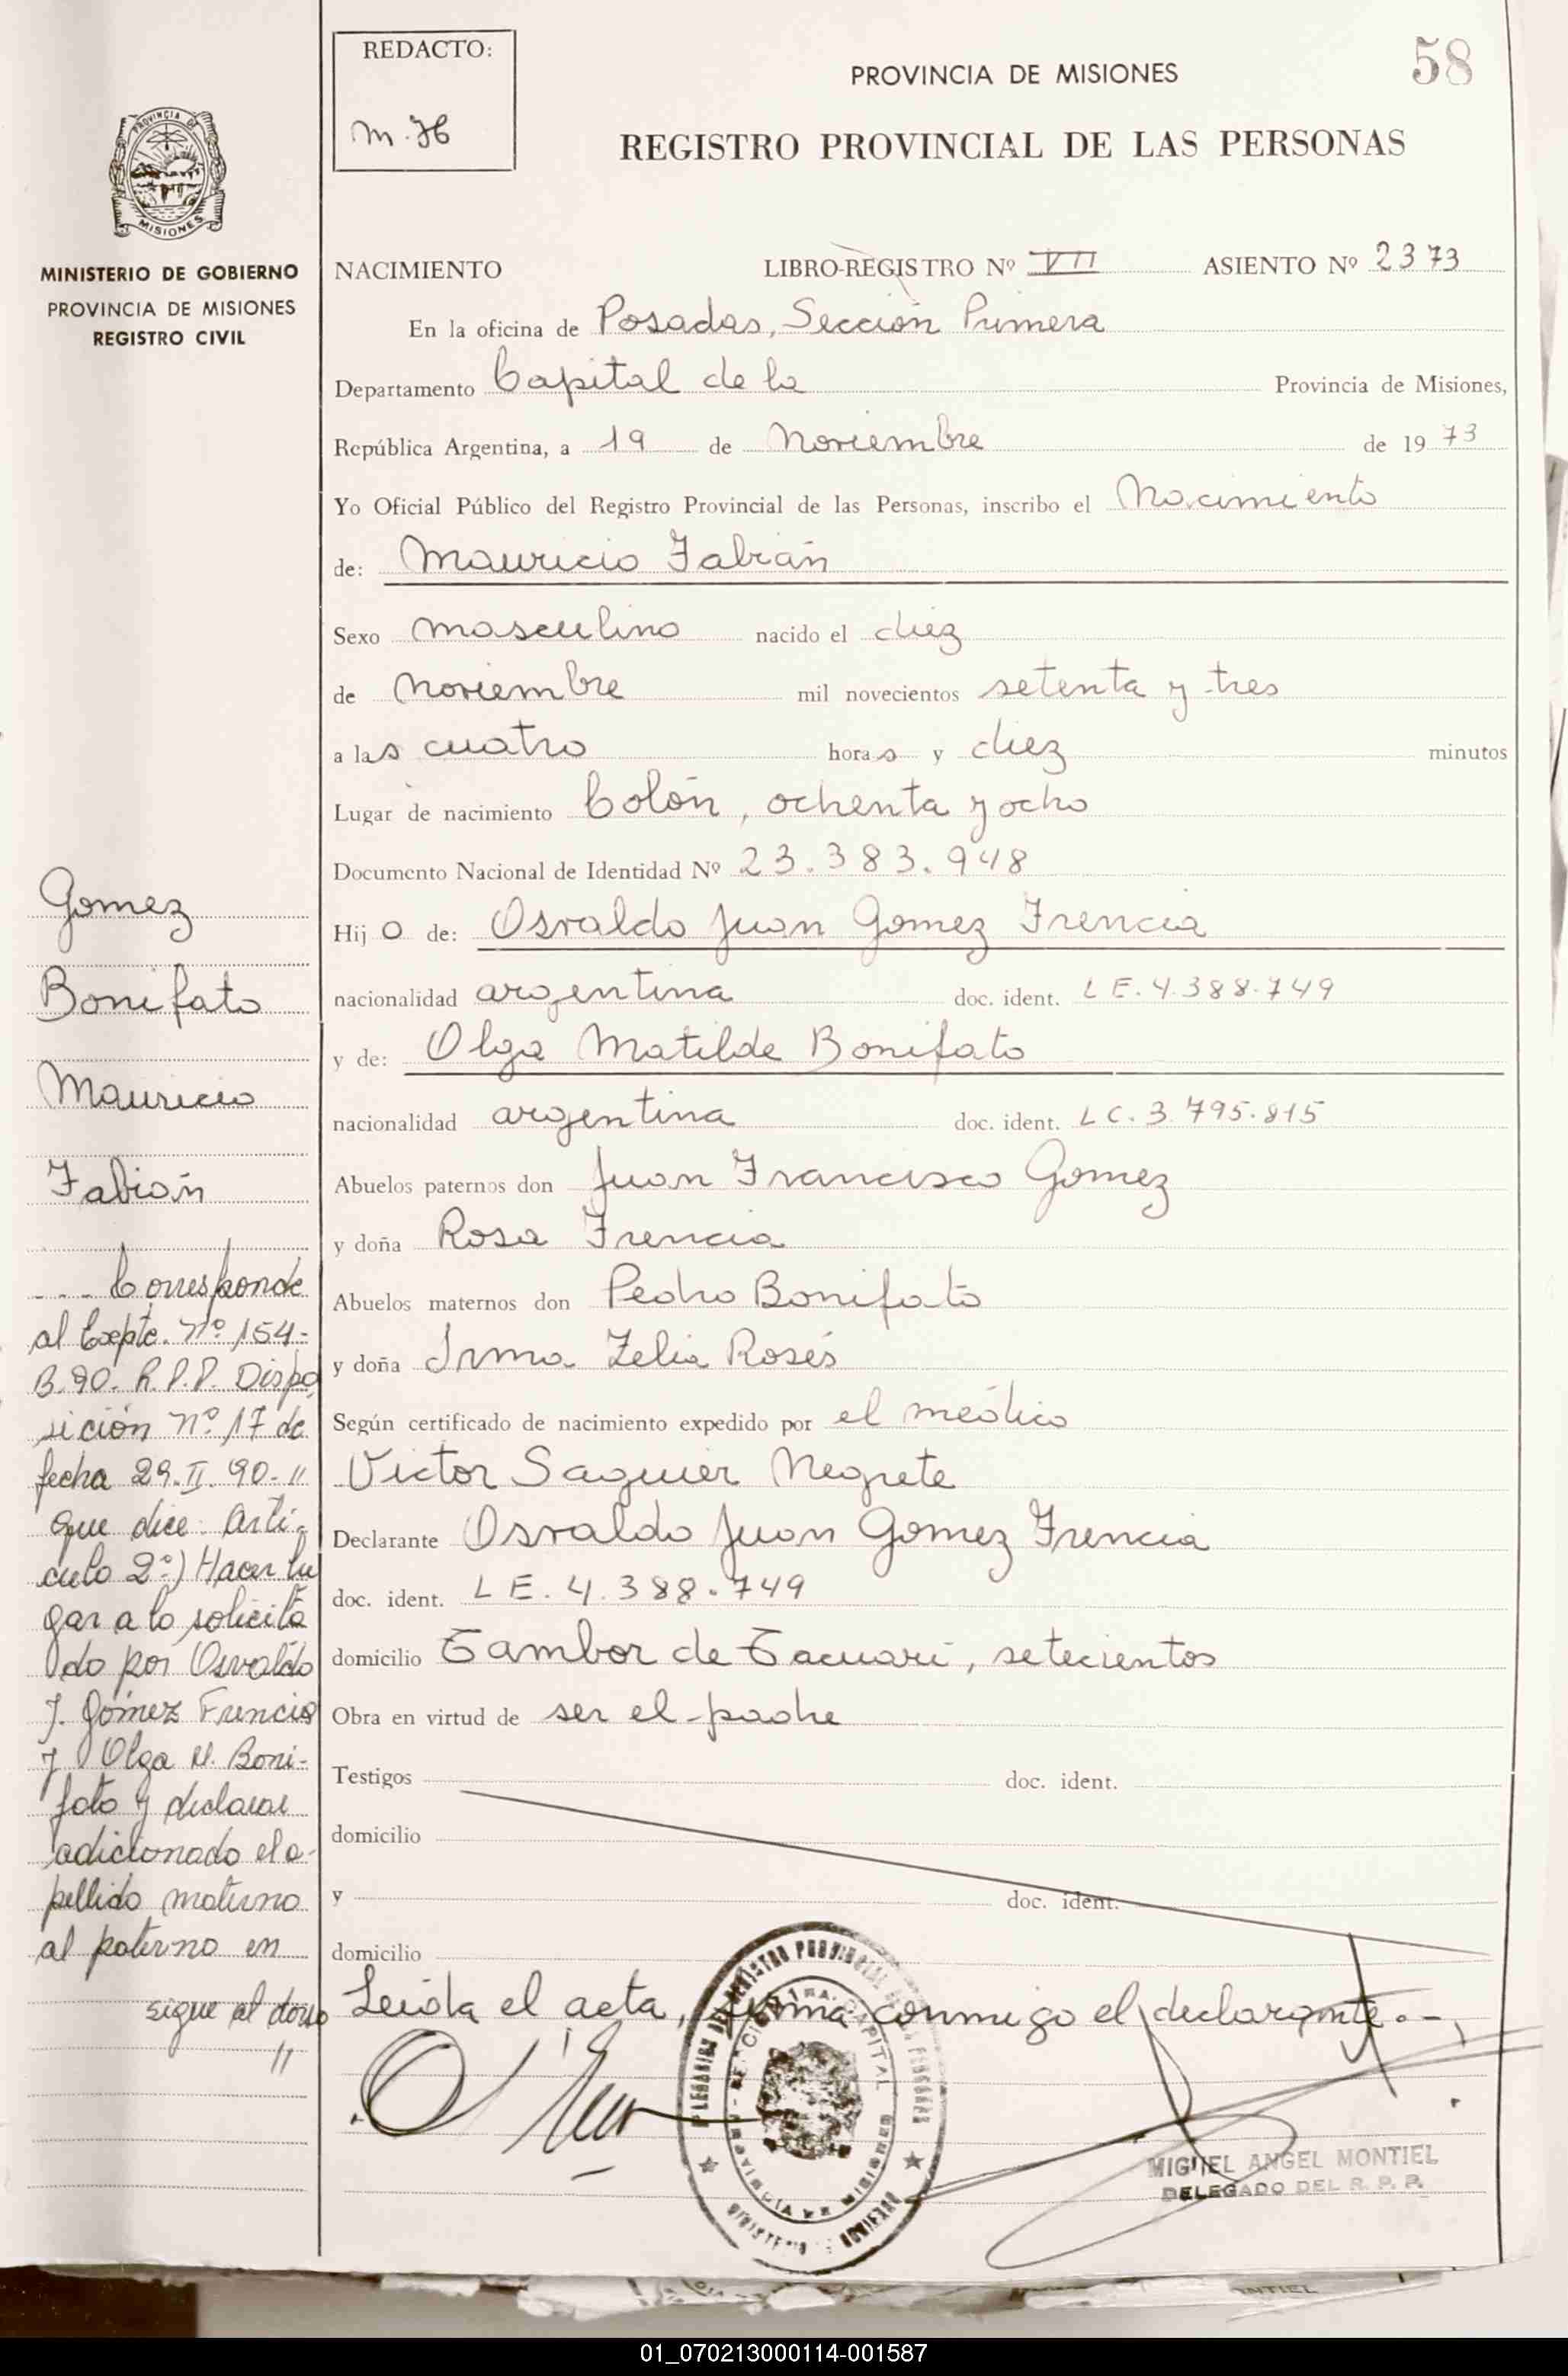 REDACTO:
m. 76
58
PROVINCIA DE MISIONES
REGISTRO PROVINCIAL DE LAS PERSONAS
PROVINCIA DE
MISIONES
MINISTERIO DE GOBIERNO
PROVINCIA DE MISIONES
REGISTRO CIVIL
NACIMIENTO LIBRO-REGISTRO Nº VII ASIENTO Nº 2373
En la oficina de Posadas, Sección Primera
Departamento Capital de la Provincia de Misiones,
República Argentina, a 19 de Noviembre de 1973
Yo Oficial Público del Registro Provincial de las Personas, inscribo el Nacimiento
de: Mauricio Fabián
Sexo masculino nacido el diez
de Noviembre mil novecientos setenta y tres
a las cuatro horas y diez minutos
Lugar de nacimiento Colón, ochenta y ocho
Documento Nacional de Identidad Nº 23.383.948
Hijo de: Osvaldo Juan Gomez Frencia
nacionalidad argentina doc. ident. LE.4.388.749
y de: Olga Matilde Bonifato
nacionalidad argentina doc. ident. LC.3.795.815
Abuelos paternos don Juan Francisco Gomez
y doña Rosa Frencia
Abuelos maternos don Pedro Bonifato
y doña Irma Zelia Rosés
Según certificado de nacimiento expedido por el médico
Victor Saguier Negrete
Declarante Osvaldo Juan Gomez Frencia
doc. ident. LE.4.388.749
domicilio Tambor de Tacuari, setecientos
Obra en virtud de ser el padre
Testigos doc. ident.
domicilio
y doc. ident.
domicilio
Leída el acta, firma conmigo el declarante.-
MIGUEL ANGEL MONTIEL
DELEGADO DEL R. P. P.
Gomez
Bonifato
Mauricio
Fabián
--- Corresponde
al Expte. Nº 154-
B.90. R.P.P. Dispo
sición Nº 17 de
fecha 29.II.90-"
que dice: Arti-
culo 2º) Hacer lu
gar a lo solicita
do por Osvaldo
J. Gómez Frencia
y Olga M. Boni-
fato y declarar
adicionado el a-
pellido materno
al paterno en
sigue al dorso
"
MONTIEL
01_070213000114-001587